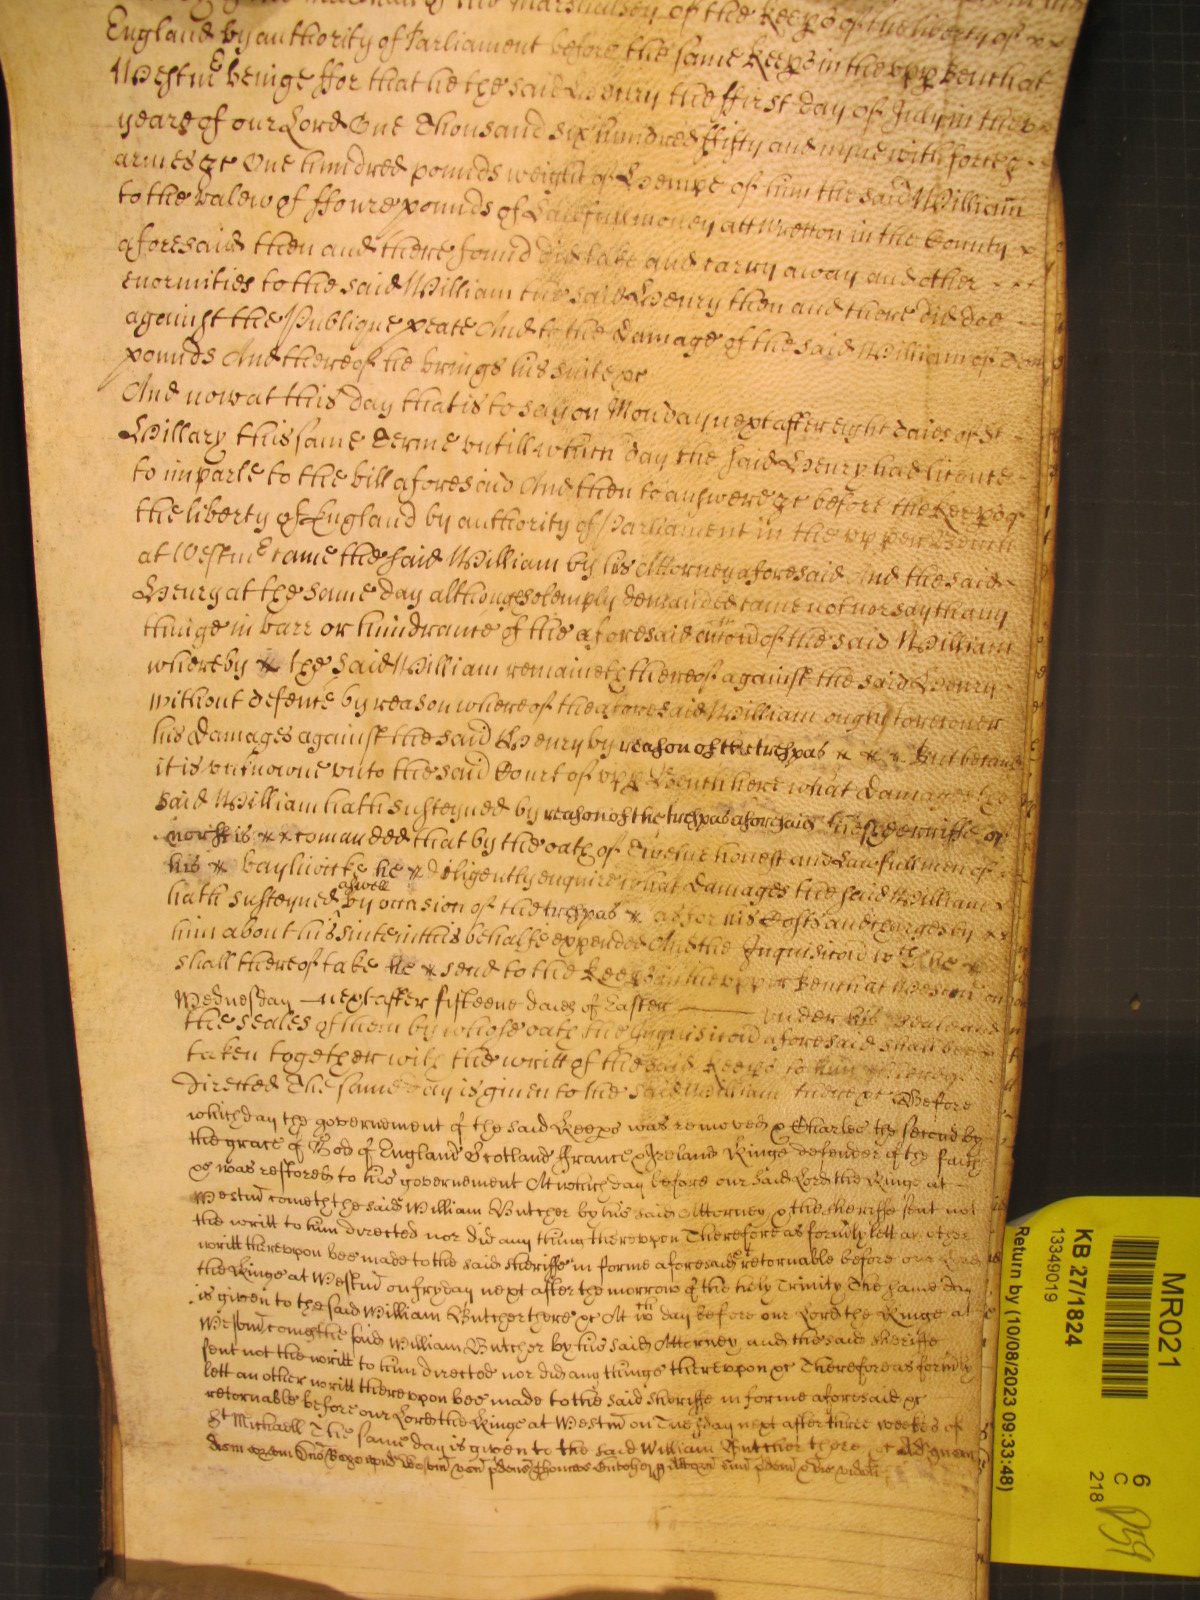 of the Marshalsey of the Keeps of the liberty of
England by authority of Parliament before the same Keeps in the upp Bench at
Westm̃ beinge ffor that he the said Henry the ffirst day of July in the
yeare of our Lord One Thousand six hundred ffifty and nyne with force &
armes &c One hundred pounds weight of Hempe of him the said William
to the valew of ffoure pounds of Lawfull money att Wretton in the County
aforesaid then and there found did take and carry away and other
enormities to the said William the said Henry then and there did doe
against the Publique peace And to the Damage of the said William of Tenn
pounds And thereof he brings his suite &c
And now at this day that is to say on Monday next after eight daies of St
Hillary this same Terme untill which day the said Henry had licence
to imparle to the bill aforesaid And then to answere &c before the Keeps of
the liberty of England by authority of Parliament in the upper Bench
at Westm̃ came the said William by his Attorney aforesaid And the said
Henry at the same day although solemply demanded came not nor say th any
thinge in barr or hindrance of the aforesaid accõn of the said William
whereby the said William remaineth thereof against the said Henry
without defence by reason whereof the aforesaid William ought to recover
his Damages against the said Henry by reason of the trespas But because
it is unknowne unto the said Court of upp Bench here what Damages the
said William hath susteyned by reason of the trespas aforesaid the Sherriffe of
Norff is comanded that by the oath of Twelve honest and Lawfull men of
his baylwicke he diligently enquire what Damages the said William
hath susteyned aswell by occasion of the trespas as for his Costs and charges by
him about his suite in this behalfe expended And the Inquisicõn wch he
shall thereof take he send to the Keeps in the upper Bench at Westm̃ on
Wednesday next after fifteene daies of Easter under his seale and
the seales of them by whose oath the Inquisicõn aforesaid shall bee
taken together with the writt of the said Keeps to him thereof
directed The same day is given to the said William there &c Before
which day the governement of the said Keeps was removed & Charles the second by
the grace of God of England Scotland ffrance & Ireland Kinge defender of the faith
&c was restored to his governement At which day before our said Lord the Kinge at
Westm̃ cometh the said William Butcher by his said Attorney & the sheriffe sent not
the writt to him directed nor did any thing thereupon Therefore as formerly lett an other
writt thereupon bee made to the said sheriffe in forme aforesaid retornable before our Lord
the Kinge at Westm̃ on fryday next after the morrow of the holy Trinity The same day
is given to the said William Butcher there &c At wch day before our Lord the Kinge at
Westm̃ comes the said William Butcher by his said Attorney and the said sheriffe
sent not the writt to him directed nor did any thinge thereupon &c Therefore as formerly
lett an other writt thereupon bee made to the said sheriffe in forme aforesaid &c
retornable before our Lord the Kinge at Westm̃ on Tuesday next after three weekes of
St Michaell The same day is given to the said William Butcher there &c Ad quem
diem coram Dño Rege apud Westm̃ veñ
MR021
KB 27/1824
13349019
Return by (10/08/2023 09:33:48)
6
C
218